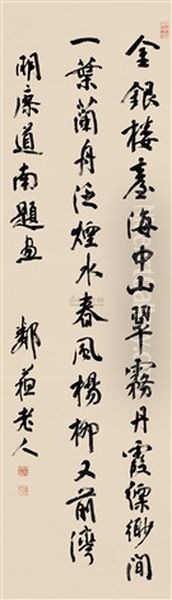 金銀楼臺海中山翠霧丹霞縹緲間
一葉蘭舟泛煙水春風楊柳又前灣
明廖道南題画
鄰蘇老人